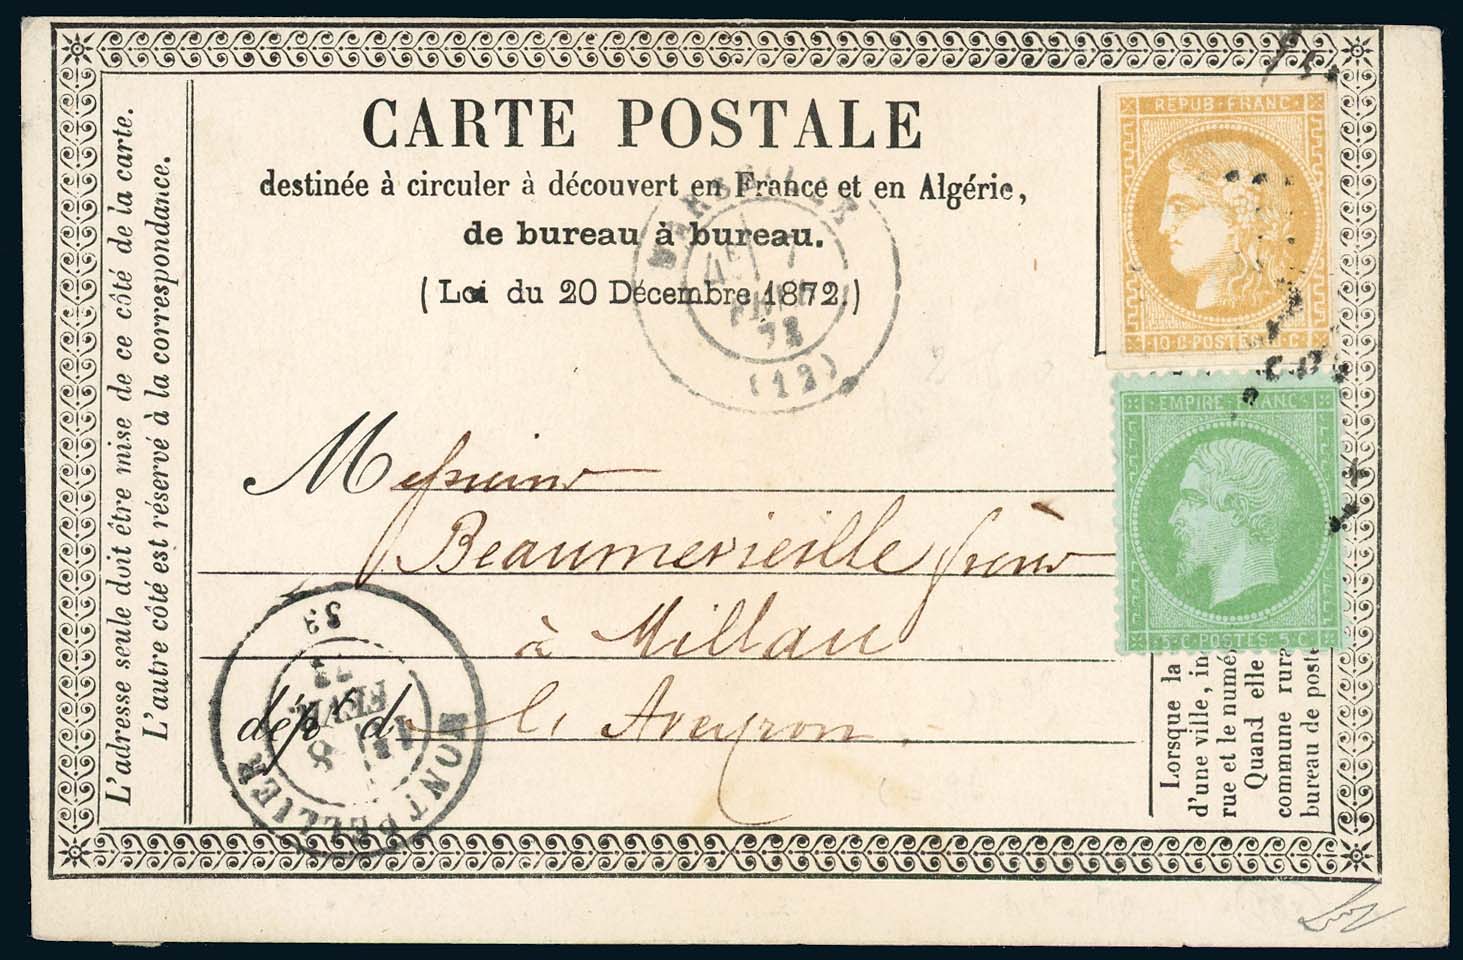 CARTE POSTALE
destinée à circuler à découvert en France et en Algérie,
de bureau à bureau.
(Loi du 20 Décembre 1872.)
L'adresse seule doit être mise de ce côté de la carte.
L'autre côté est réservé à la correspondance.
REPUB·FRANC·
10·C·POSTES·10·C·
EMPIRE·FRANC·
5·C·POSTES·5·C
MARSEILLE
FEVR
73
(12)
Messieurs
Beaumevieille frères
à Millau
dépt de l'Aveyron
MONTPELLIER
8
FEVR
73
Lorsque la
d'une ville, in
rue et le numé
Quand elle
commune rura
bureau de poste